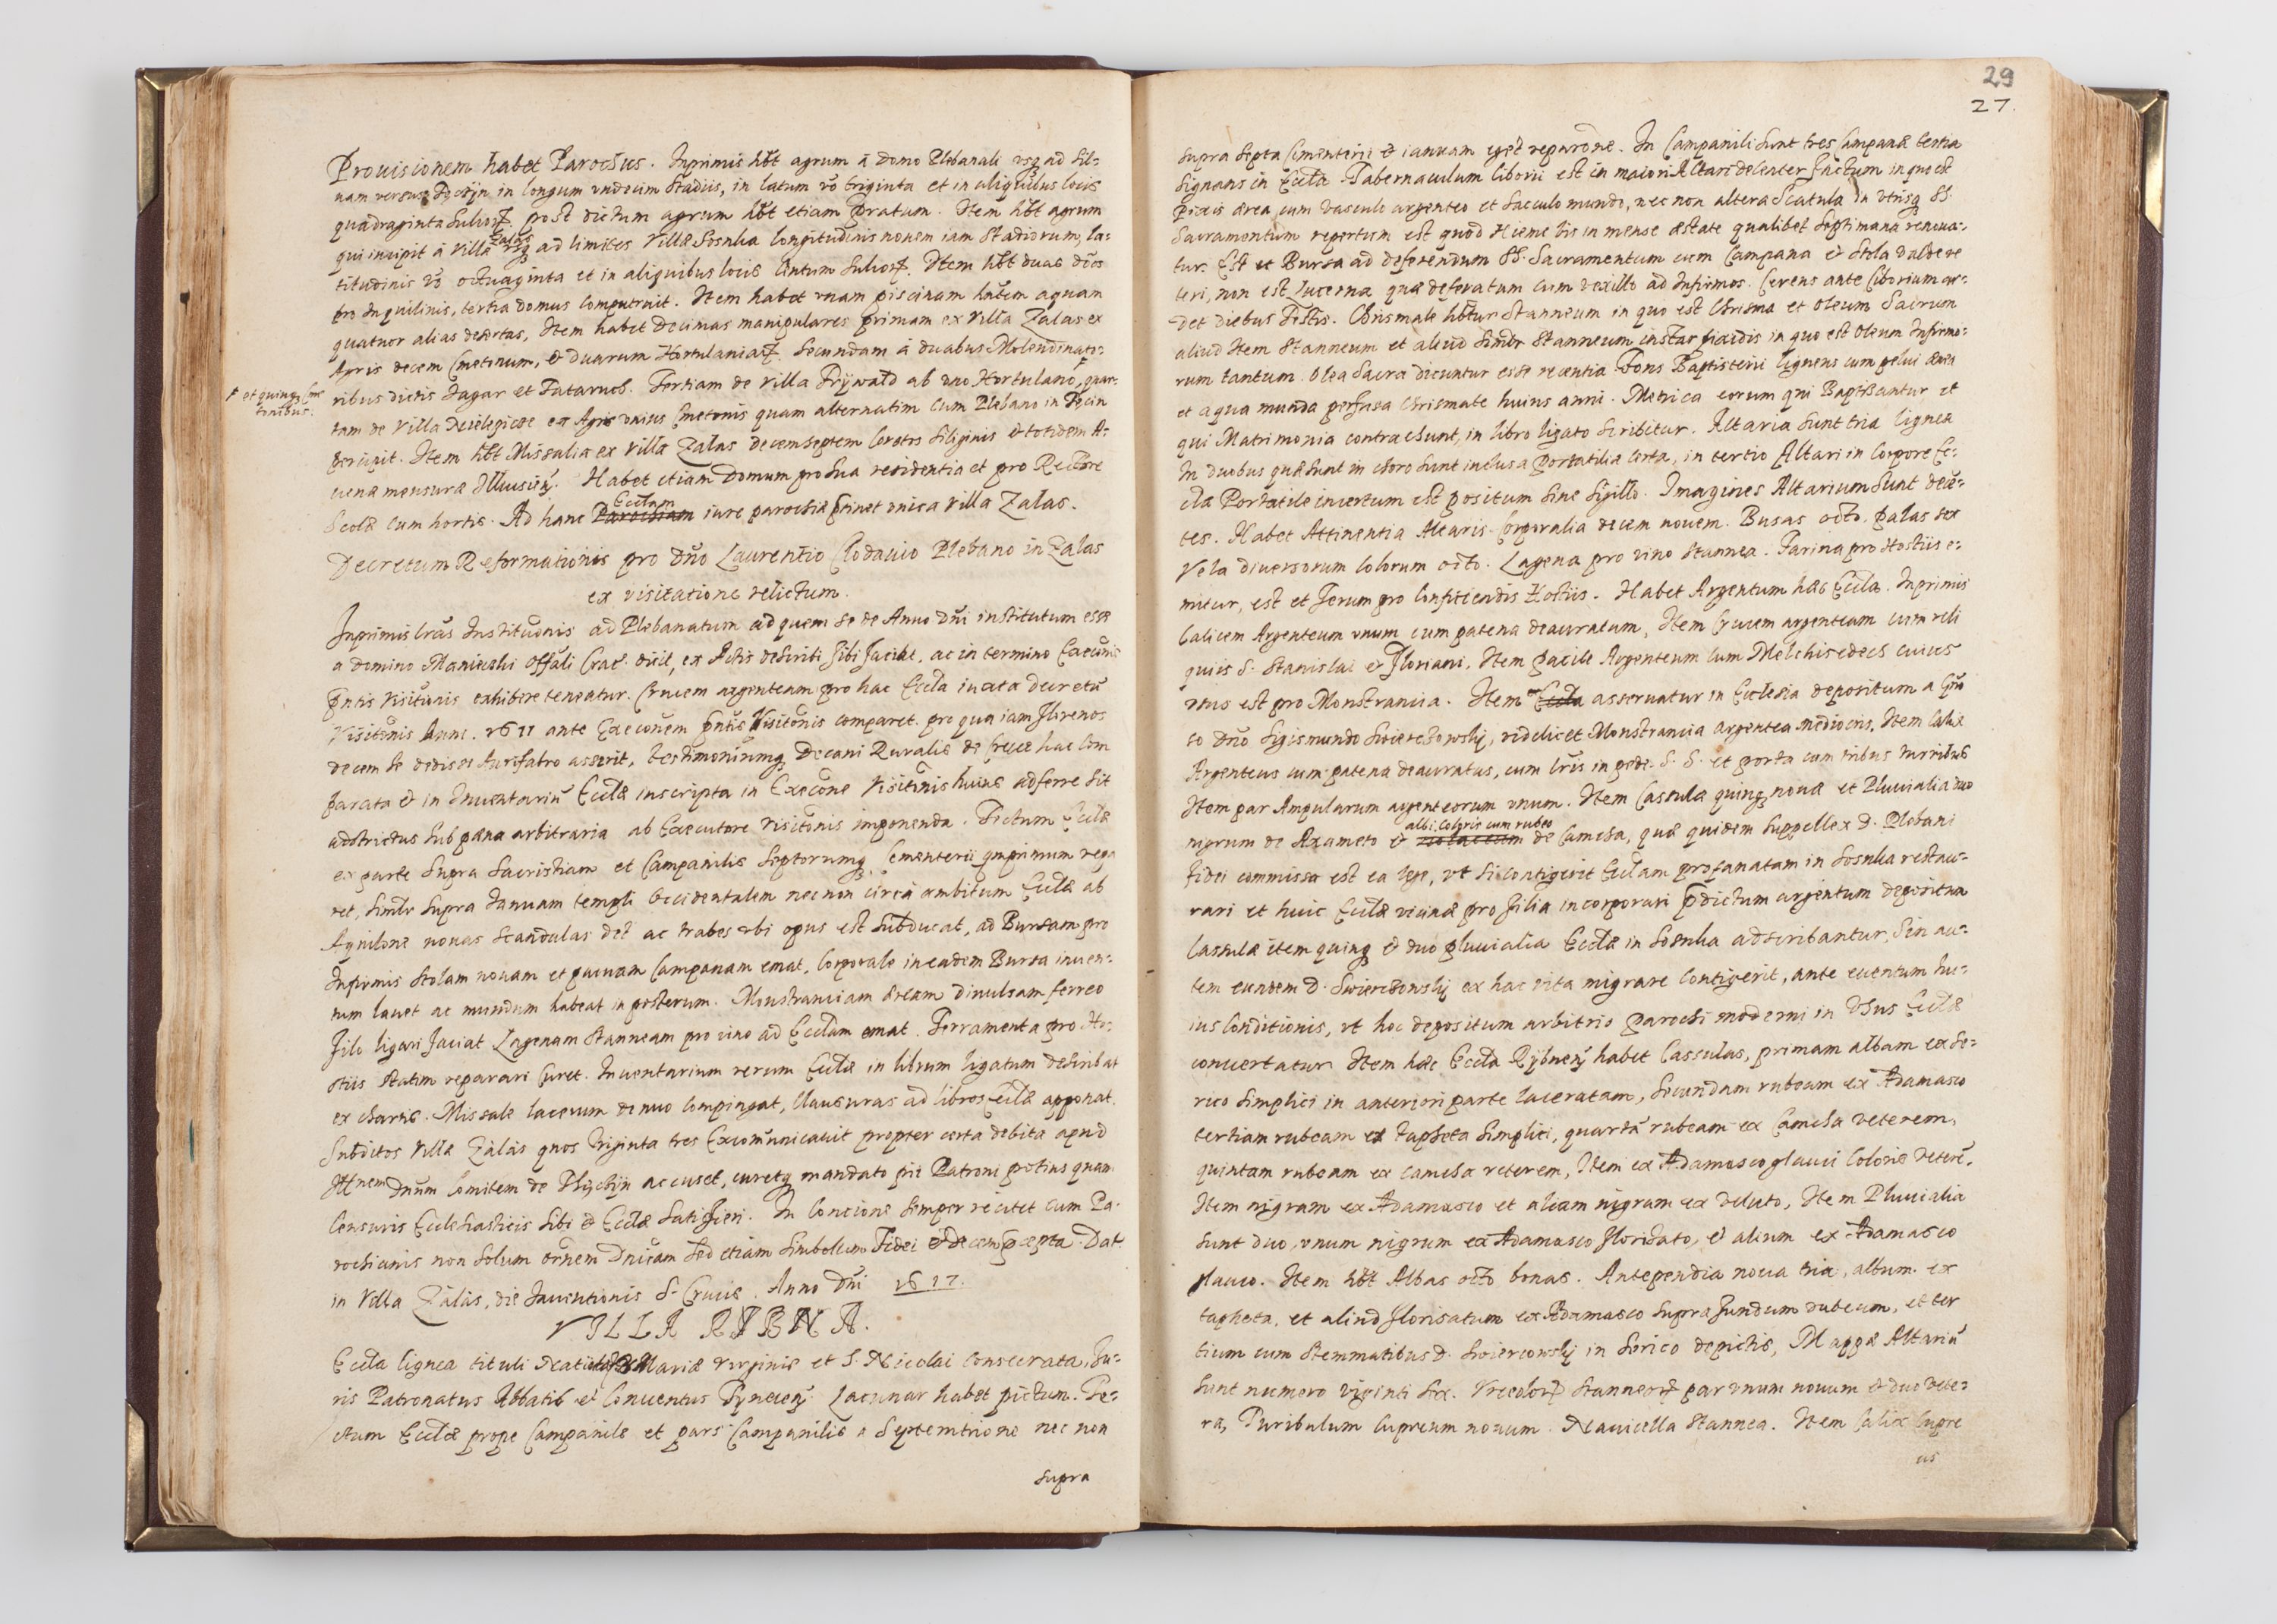 Prouisionem habet Parochus. Inprimis hbt agrum à domo Plebanali usq ad sil-
uam versus Tęczyn in longum undecim stadiis, in latum vo triginta et in aliquibus locis
quadraginta sulcorz. post dictum agrum hbt etiam Pratum. Item hbt agrum
qui incipit à Villa Zalas usq ad limites Villæ Sosnka longitudinis nouem iam stadiorum, la-
titudinis vo octuaginta et in aliquibus locis Centum sulcorz. Item hbt duas dos
pro Inquilinis, tertia domus computruit. Item habet unam piscinam habem aquam
quatuor alias desertas, Item habet Decimas manipulares primam ex Villa Zalas ex
Agris decem Cmetonum, & duarum Hortulaniarz. Secundam à duabus Molendinato-
ribus dictis Jagar et Tataruch. Tertiam de villa Frywałd ab uno Hortulano, quar-
† et quinq Cme
tonibus.
tam de villa Nielepice ex Agris unius Cmetonis quam alternatim cum Plebano in Tęcin
percipit. Item hbt Missalia ex Villa Zalas decemseptem Coretos siliginis & totidem A-
uenæ mensuræ Ilkusien. Habet etiam Domum pro sua residentia et pro Rectore
Scolæ cum hortis. Ad hanc Parochiam Ecclam iure parochiæ ptinet unica villa Zalas.
Decretum Reformationis pro dno Laurentio Clodauio Plebano in Zalas
ex visitatione relictum.
Inprimis lras Institutionis ad Plebanatum ad quem se de Anno Dni institutum esse
a domino Maniecki Offali Crac. dicit, ex Actis describi sibi faciat, ac in termino Execunis
pntis visitunis exhibere teneatur. Crucem argenteam pro hac Eccla iuxta decretu
Visitonis Anni 1611 ante Execonem pntis Visitonis comparet. pro qua iam florenos
decem se dedisse Aurifabro asserit, testimoniumq Decani Ruralis de Cruce hac Com
parata & in Inuentariu Ecclæ inscripta in Execone Visitonis huius adferre sit
adstrictus sub pæna arbitraria ab Executore visitonis imponenda. Tectum Ecclæ
ex parte supra Sacristiam et Campanilis septorumq Cementerii qmprimum repa
ret, similr supra Ianuam templi Occidentalem nec non circa ambitum Ecclæ ab
Aquilone nouas scandulas det ac trabes ubi opus est subducat, ad Bursam pro
Infirmis stolam nouam et paruam Campanam emat, Corporale in eadem Bursa inuen-
tum lauet ac mundum habeat in posterum. Monstranciam ærcam diuulsam ferreo
filo ligari faciat Lagenam stanneam pro uino ad Ecclam emat. Ferramenta pro Ho-
stiis statim reparari curet. Inuentarium rerum Ecclæ in librum ligatum describat
ex chartis. Missale lacerum denuo compingat, Clausuras ad libros Ecclæ apponat.
Subditos Villæ Zalas quos triginta tres Excomunicauit propter certa debita apud
Illnem Dnum Comitem de Thęczyn accuset, curetq mandato pii Patroni potius quam
Censuris Ecclesiasticis sibi & Ecclæ satisfieri. In Concione semper recitet cum Pa-
rochianis non solum Ornem Dnicam sed etiam Simbolum Fidei & decem pcepta. Dat
in Villa Zalas, die Inuentionis S. Crucis. Anno Dni 1617.
VILLA RYBNA.
Eccla lignea tituli Natiuitatis Mariæ Virginis et S. Nicolai consecrata, Iu-
ris Patronatus Abbatis et Conuentus Tynecen. Lacunar habet pictum. Te-
ctum Ecclæ prope Campanile et pars Campanilis a Septemtrione nec non
supra
29
27.
supra septa Cimenterii & ianuam eget reparone. In Campanili sunt tres Campanæ tertia
signans in Eccla. Tabernaculum Ciborii est in maiori Altari decenter factum in quo est
Pixis ærea cum vasculo argenteo et sacculo mundo, nec non altera Scatula in utrisq SS.
Sacramentum repertum est quod Hieme bis in mense æstate qualibet septimana renoua-
tur. Est et Bursa ad deferendum SS. Sacramentum cum Campana & Stola valde ue
teri, non est Lucerna quæ deferatur cum vexillo ad Infirmos. Cereus ante Ciborium ar-
det diebus Festis. Chrismale hbtur stanneum in quo est Chrisma et Oleum Sacrum
aliud Item stanneum et aliud similr stanneum instar pixidis in quo est Oleum Infirmo-
rum tantum. Olea Sacra dicuntur esse recentia. Fons Baptisterii ligneus cum pelui ærea
et aqua munda perfusa chrismate huius anni. Metrica eorum qui Baptisantur et
qui Matrimonia contrachunt, in libro ligato scribitur. Altaria sunt tria lignea
In duobus quæ sunt in choro sunt inclusa Portatilia certa, in tertio Altari in Corpore Ec-
clæ Portatile incertum est positum sine sigillo. Imagines Altarium sunt decen-
tes. Habet Attinentia Altaris Corporalia decem nouem. Bursas octo, palas sex
Vela diuersorum colorum octo. Lagena pro vino stannea. Farina pro Hostiis e-
mitur, est et ferum pro conficiendis Hostiis. Habet Argentum hæc Eccla. Inprimis
Calicem Argenteum unum cum patena deauratum, Item Crucem argenteam cum reli
quiis S. Stanislai et Floriani, Item pacile Argenteum cum Melchisedech cuius
usus est pro Monstrancia. Item Eccla asseruatur in Ecclesia depositum a Gno
so Dno Sigismundo Swierczowskj, videlicet Monstrancia argentea mediocris. Item Calix
Argenteus cum patena deauratus, cum lris in pede. S. S. et porta cum tribus turribus
Item par Ampularum argenteorum unum. Item Cassulæ quinq nouæ et Pluuialia duo
nigrum de Axameto & violaceum albi coloris cum rubeo de Camcha, quæ quidem suppellex D. Plebani
fidei commissa est ea lege, ut si contigerit Ecclam profanatam in Sosnka restau-
rari et huic Ecclæ vicinæ pro filia incorporari pdictum argentum depositum
Cassulæ item quinq & duo pluuialia Ecclæ in Sosnka adscribantur, Sin au-
tem eundem D. Swierczowskj ex hac vita migrare contigerit, ante euentum hu-
ius conditionis, ut hoc depositum arbitrio parochi moderni in Vsus Ecclæ
conuertatur. Item hæc Eccla Rybnen habet Cassulas, primam albam ex se-
rico simplici in anteriori parte laceratam, secundam rubeam ex Adamasco
tertiam rubeam ex tapheta simplici, quarta rubeam ex Camcha veterem,
quintam rubeam ex camcha veterem, Item ex Adamasco glauci coloris vetere.
Item nigram ex Adamasco et aliam nigram ex veluto, Item Pluuialia
sunt duo, unum nigrum ex Adamasco floridato, & alium ex Adamasco
glauco. Item hbt Albas octo bonas. Antependia noua tria, album ex
tapheta, et aliud florisatum ex Adamasco supra fundum rubeum, et ter
tium cum stemmatibus D. Swierczowskj in serico depictis, Mappæ Altariu
sunt numero viginti sex. Vrceolorz stanneorz par unum nouum & duo vete-
ra, Turibulum cupreum nouum. Nauicella stannea. Item Calix cupre
us